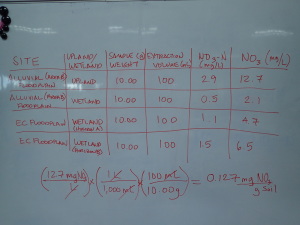 SITE UPLAND/WETLAND SAMPLE (g) WEIGHT EXTRACTION VOLUME (mL) NO3-N (mg/L) NO3 (mg/L)
ALLUVIAL FLOODPLAIN UPLAND 10.00 100 2.9 12.7
ALLUVIAL FLOODPLAIN WETLAND 10.00 100 0.5 2.1
EC FLOODPLAIN WETLAND 10.00 100 1.1 4.7
EC FLOODPLAIN WETLAND 10.00 100 1.5 6.5
(12.7 mg NO3 / L) × (1 L / 1,000 mL) × (100 mL / 10.00 g) = 0.127 mg NO3 / g soil